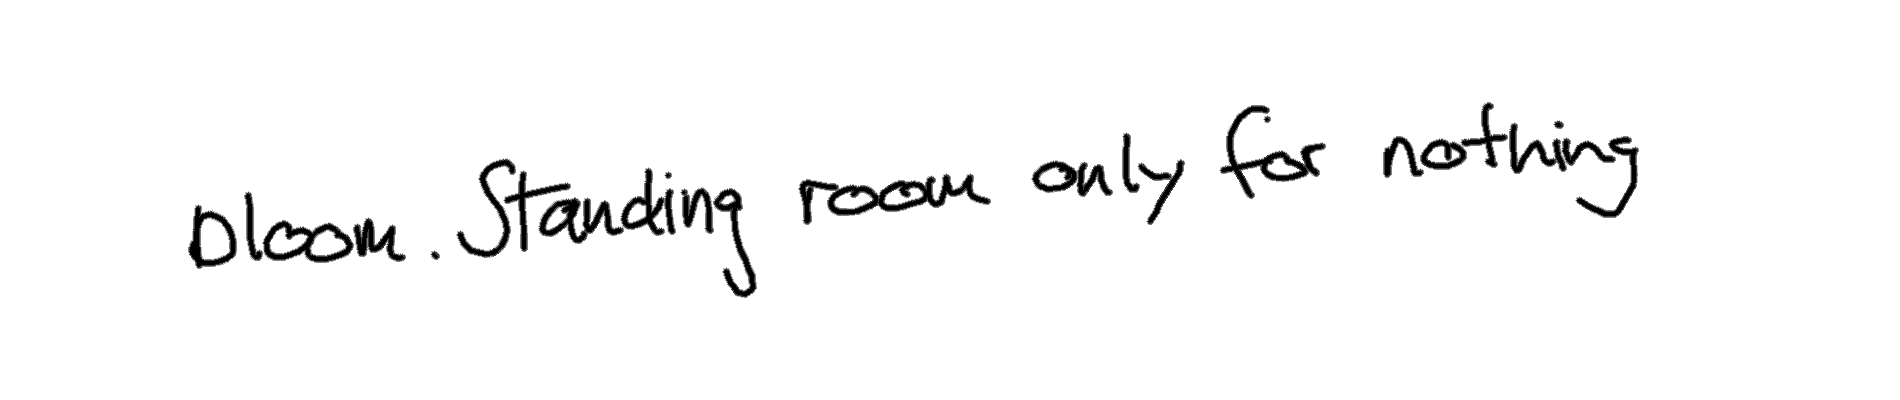 Bloom. Standing room only for nothing